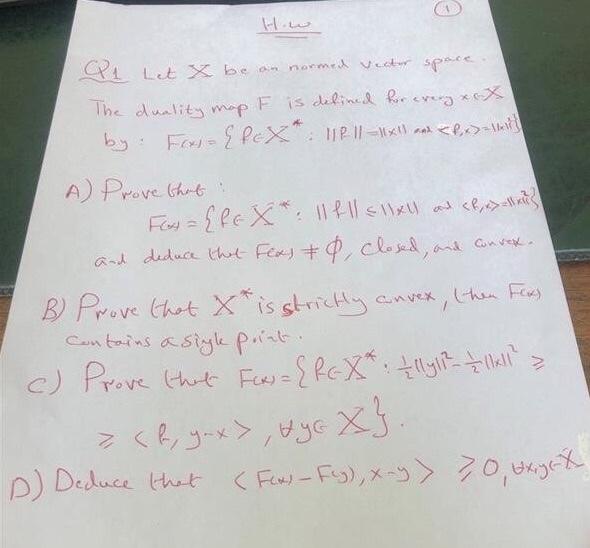 ①
H.w
Q1 Let X be an normed vector space.
The duality map F is defined for every x∈X
by : F(x) = { f∈X* : ||f||=||x|| and <f,x>=||x||²}
A) Prove that :
F(x) = { f∈X* : ||f|| ≤ ||x|| and <f,x>=||x||²}
and deduce that F(x) ≠ ∅, closed, and convex.
B) Prove that X* is strictly convex, then F(x)
contains a single point.
C) Prove that F(x) = { f∈X* : ½||y||² - ½||x||² ≥
≥ <f, y-x>, ∀y∈X}.
D) Deduce that <F(x) - F(y), x-y> ≥ 0, ∀x,y∈X